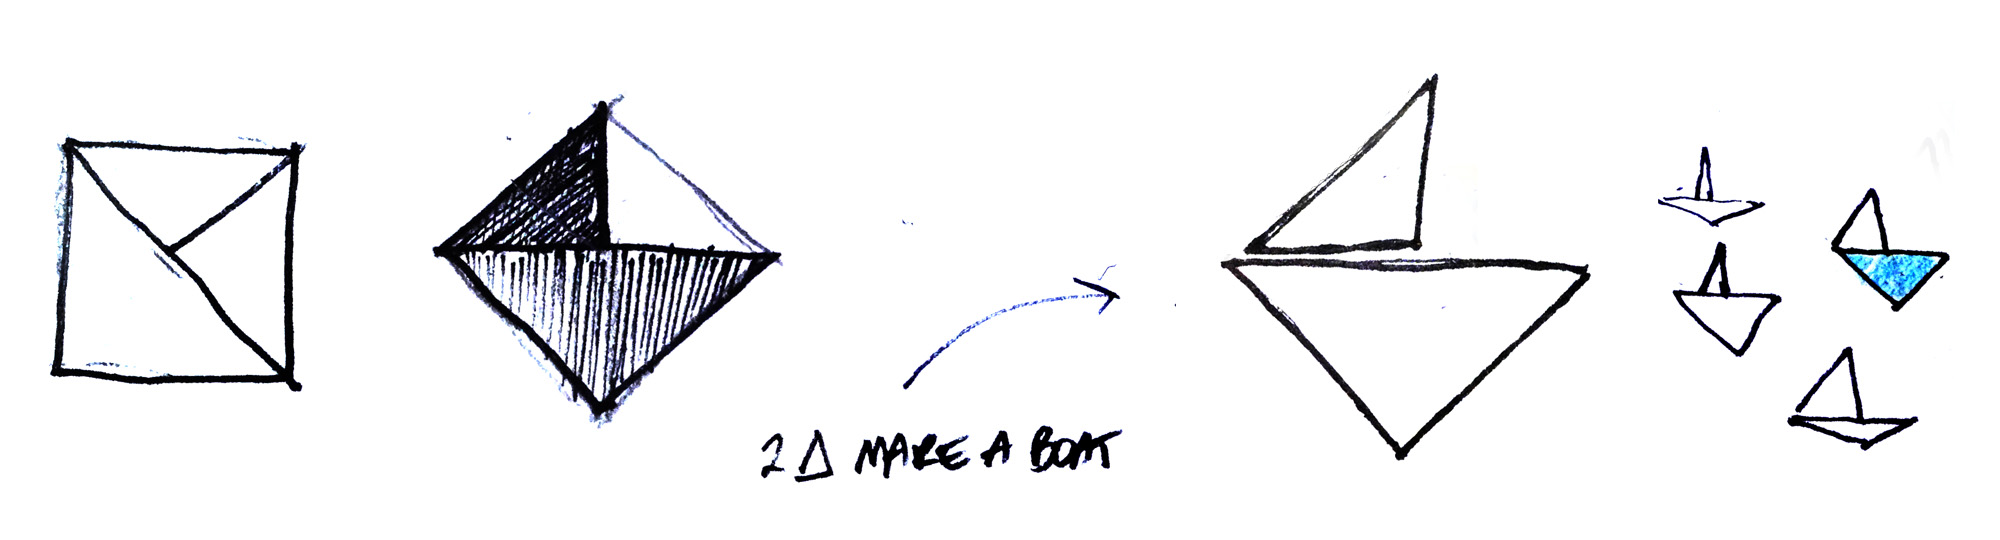 2 Δ MAKE A BOAT